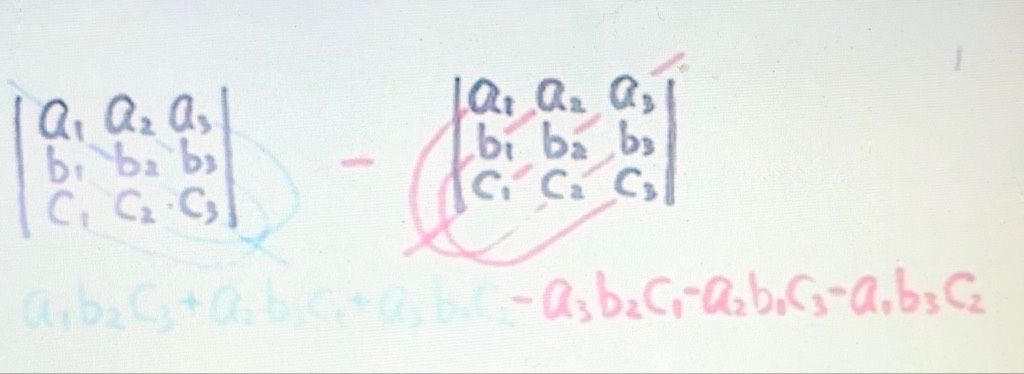 | a₁ a₂ a₃ | - | a₁ a₂ a₃ |
| b₁ b₂ b₃ | | b₁ b₂ b₃ |
| c₁ c₂ c₃ | | c₁ c₂ c₃ |
a₁b₂c₃+a₂b₃c₁+a₃b₁c₂-a₃b₂c₁-a₂b₁c₃-a₁b₃c₂